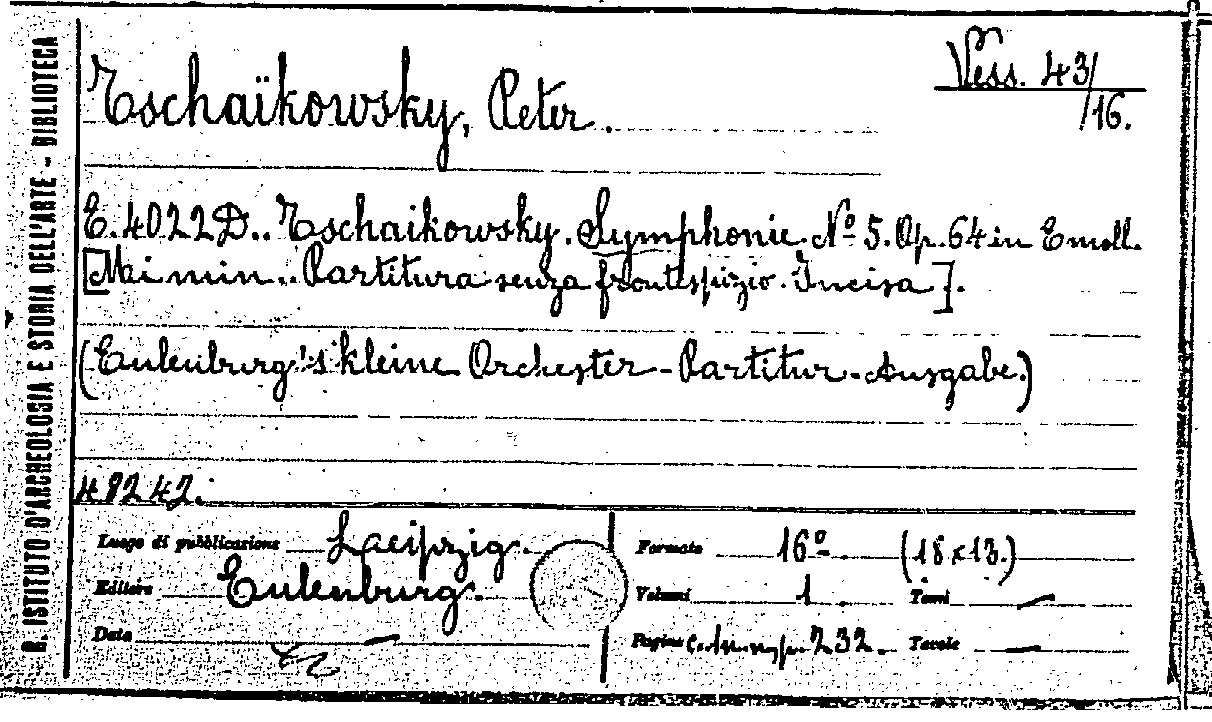 R. ISTITUTO D'ARCHEOLOGIA E STORIA DELL'ARTE - BIBLIOTECA
Tschaïkowsky, Peter.
Vess. 43/
/16.
E. 4022 D.. Tschaikowsky. Symphonie. Nº 5. Op. 64 in E moll.
[Mi min.. Partitura senza frontespizio. Incisa].
(Eulenburg's kleine Orchester - Partitur - Ausgabe.)
48242.
Luogo di pubblicazione Laeipzig.
Editore Eulenburg.
Data —
Formato 16º. (18 x 13.)
Volumi 1. Tomi —
Pagine 232. Tavole —